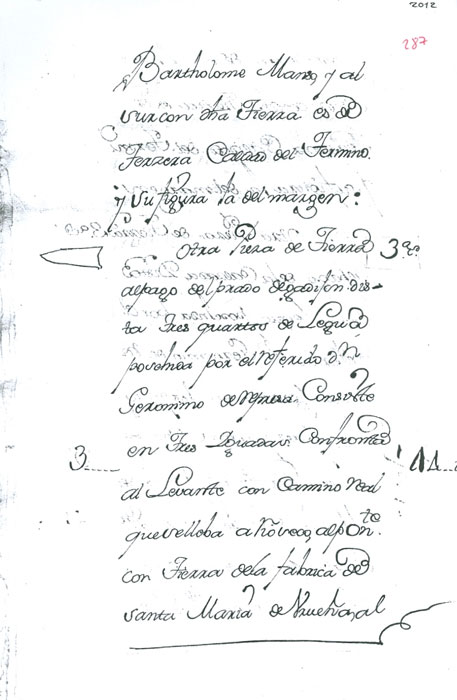 2012
287
Bartholome Manso, y al
sur con dha Tierra es de
Terzera Calidad del Termino.
y su figura la del margen:
Otra Pieza de Tierra 3ª.
al pago del prado de
ta Tres quartos de Legua
posehida por el Referido Dn
Geronimo de Consiste
en Tres Confronta
3
11
al Levante con Camino Real
que se lleba a al Ponte.
con Tierra de la fabrica de
Santa Maria de al